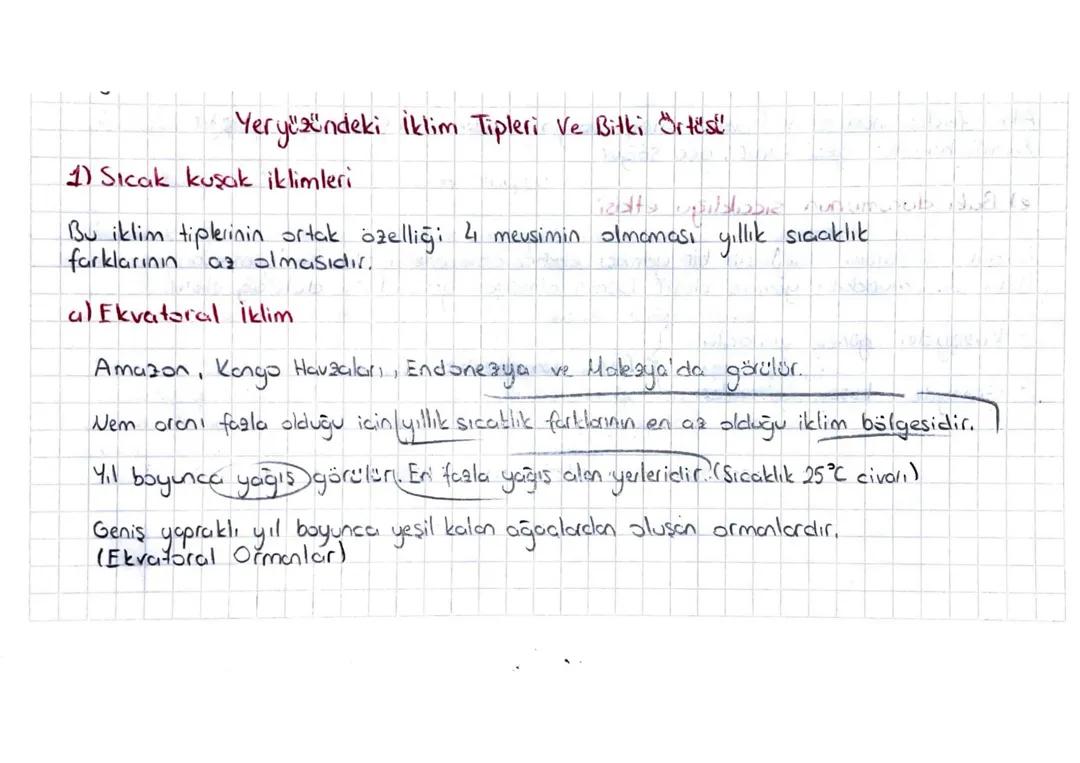 Yeryüzündeki İklim Tipleri Ve Bitki Örtüsü
1) Sıcak kuşak iklimleri
Bu iklim tiplerinin ortak özelliği 4 mevsimin olmaması yıllık sıcaklık
farklarının az olmasıdır.
a) Ekvatoral İklim
Amazon, Kongo Havzaları, Endonezya ve Malezya'da görülür.
Nem oranı fazla olduğu için yıllık sıcaklık farklarının en az olduğu iklim bölgesidir.
Yıl boyunca yağış görülür. En fazla yağış alan yerleridir. (Sıcaklık 25°C civarı)
Geniş yapraklı yıl boyunca yeşil kalan ağaçlardan oluşan ormanlardır.
(Ekvatoral Ormanlar)